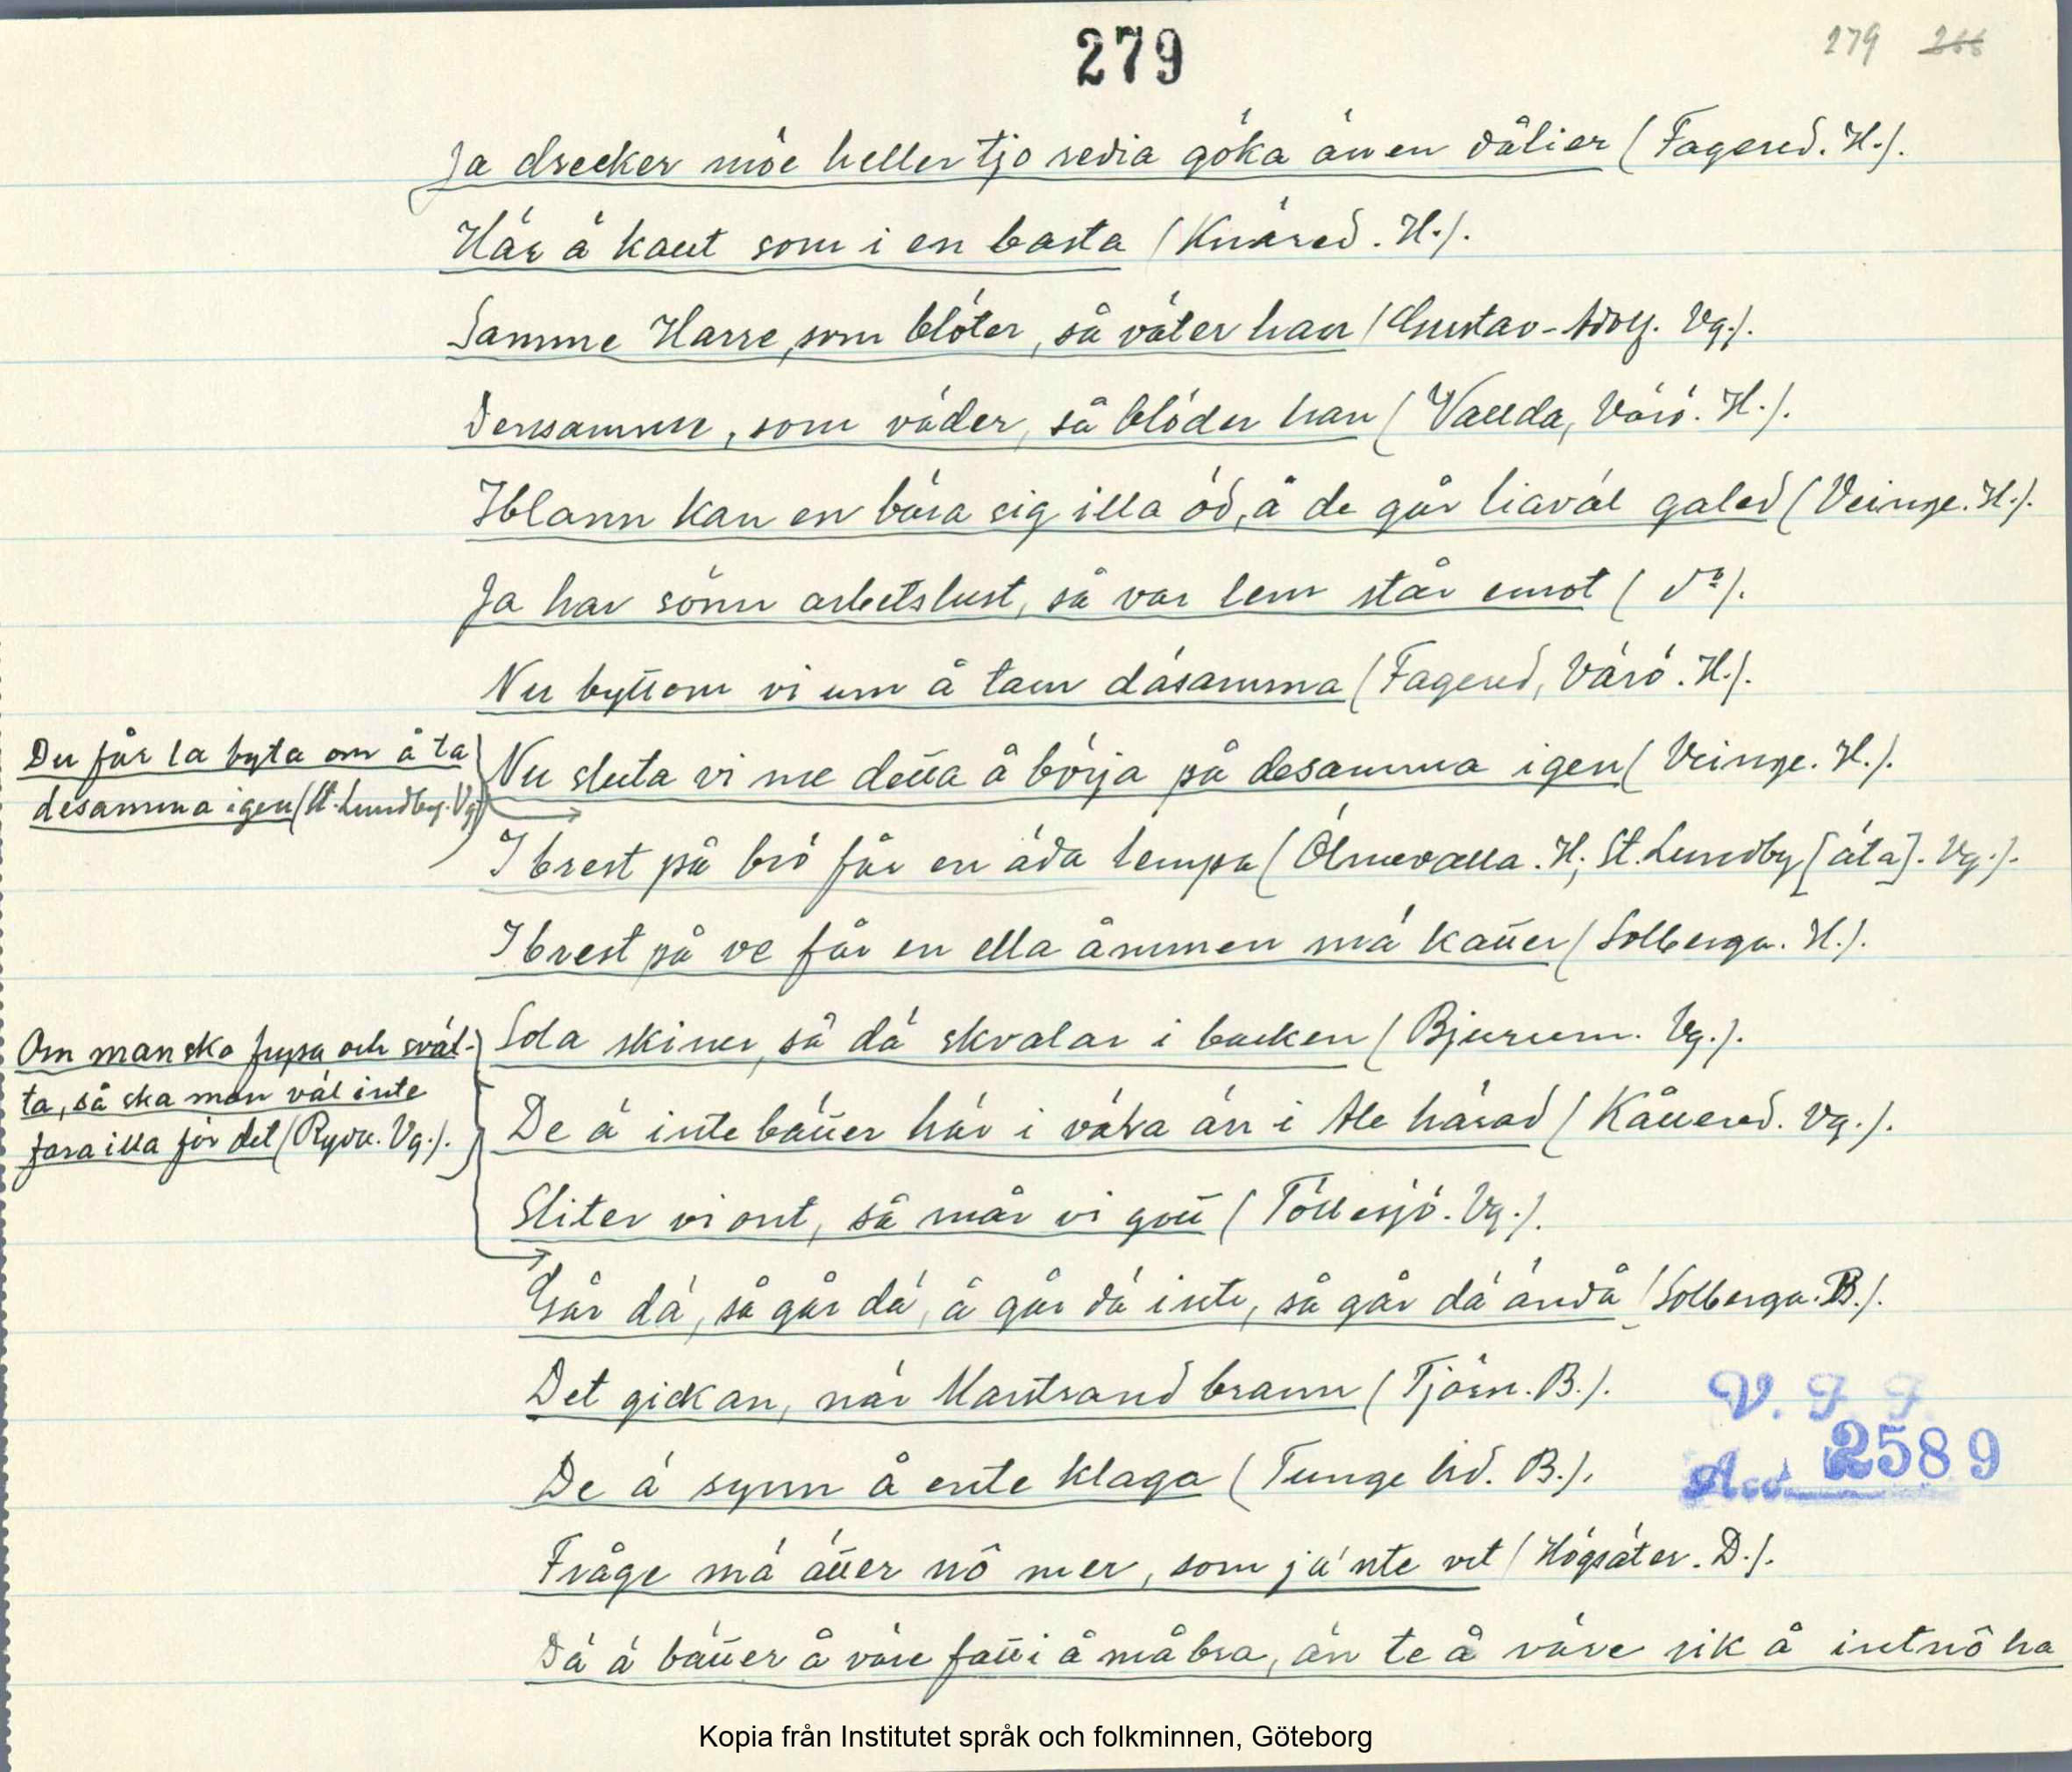 279
279 266
Ja drecker möe heller tjo redia göka än en dålier (Fagered. H.).
Här ä kallt som i en basta (Knäred. H.).
Samme Harre, som blöter, så väter han (Gustav-Adolf. Vg.).
Densamme, som väder, så blöder han (Vallda, Värö. H.).
Iblann kan en bära sig illa öd, å de går liaväl galed (Veinge. H.).
Ja har sönn arbetslust, så var lem står emot (do).
Nu byttom vi um å tam däsamma (Fagered, Värö. H.).
Du får la byta om å ta
desamma igen (St. Lundby. Vg.)
Nu sluta vi me detta å börja på desamma igen (Veinge. H.).
I brest på brö får en äda lempa (Ölmevalla. H; St. Lundby [äta]. Vg.).
I brest på ve får en ella åmmen mä katter (Solberga. H.).
Om man ska frysa och sväl-
ta, så ska man väl inte
fara illa för det (Ryda. Vg.).
Sola skiner, så dä skvalar i backen (Bjurum. Vg.).
De ä inte bätter här i väla än i Ale härad (Kållered. Vg.).
Sliter vi ont, så mår vi gott (Töllesjö. Vg.).
Går dä, så går dä, å går dä inte, så går dä ändå (Solberga. B.).
Det gick an, när Marstrand brann (Tjörn. B.).
De ä synn å ente klaga (Tunge hd. B.).
V. F. F.
Acc. 2589
Fråge mä ätter nô mer, som ja' nte vet (Högsäter. D.).
Dä ä bätter å väre fatti å må bra, än te å väre rik å intnô ha
Kopia från Institutet språk och folkminnen, Göteborg